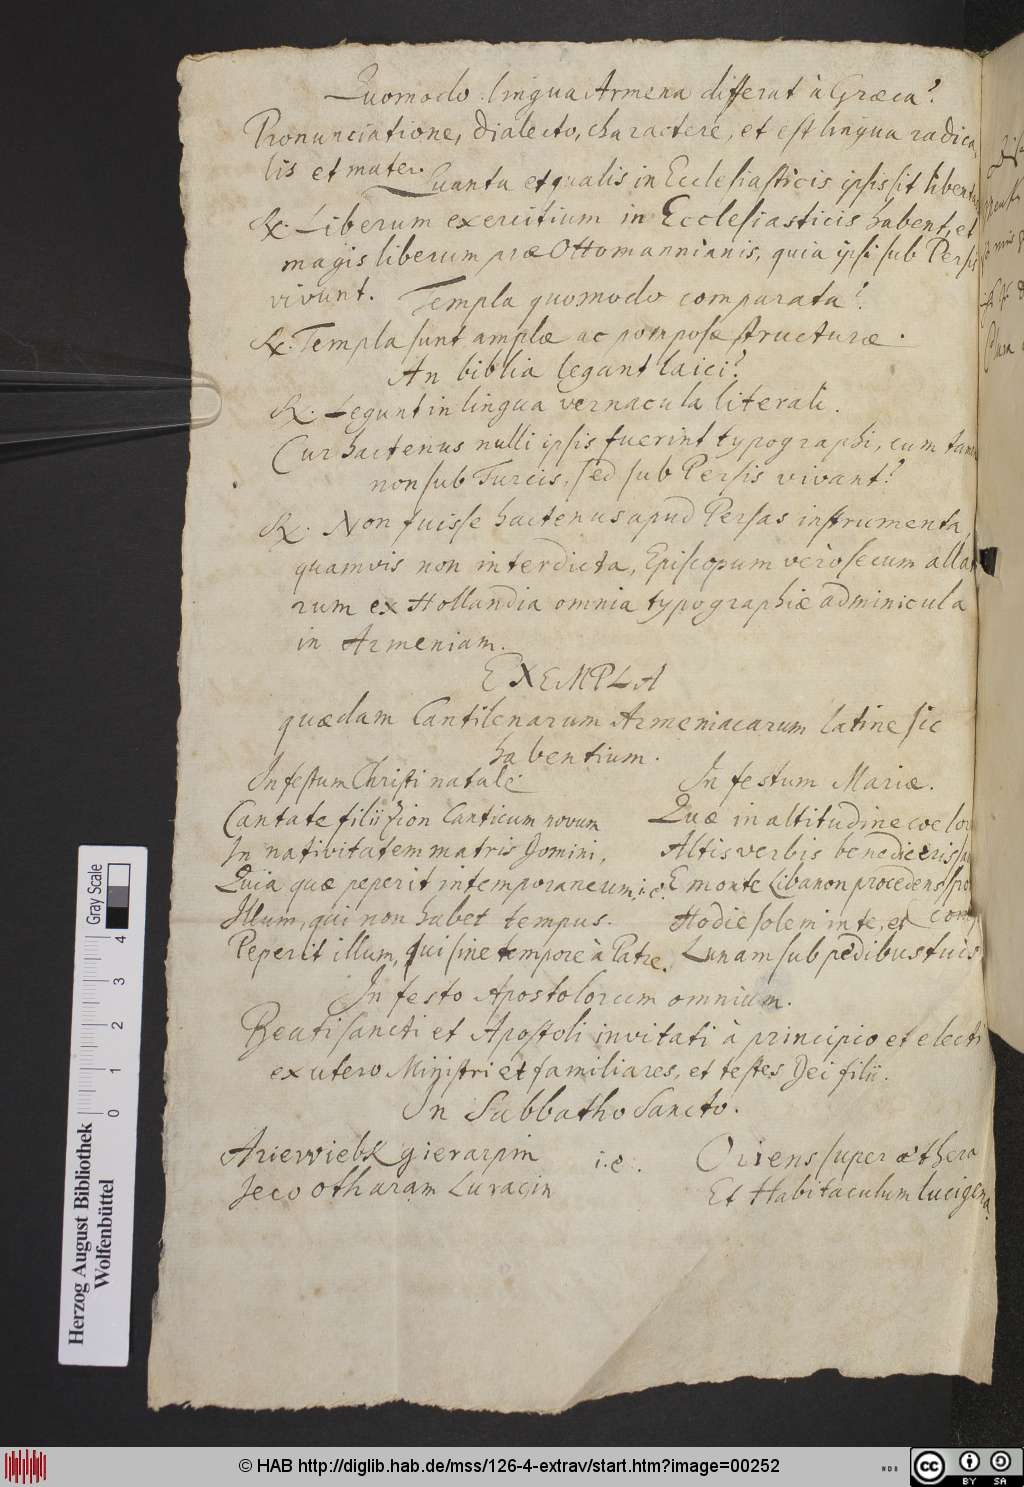 Quomodo lingua Armena differat à Græca?
Pronunciatione, dialecto, charactere, et est lingua radica
lis et mater.
Quanta et qualis in Ecclesiasticis ipsis sit libertas
℞. Liberum exercitium in Ecclesiasticis habent, et
magis liberum præ Ottomannianis, quia ipsi sub Persis
vivunt. Templa quomodo comparata?
℞. Templa sunt amplæ ac pomposæ structuræ.
An biblia legant laici?
℞. Legunt in lingua vernacula literali.
Cur hactenus nulli ipsis fuerint typographi, cum tamen
non sub Turcis, sed sub Persis vivant?
℞. Non fuisse hactenus apud Persas instrumenta,
quamvis non interdicta, Episcopum verò secum allatu
rum ex Hollandia omnia typographiæ adminicula
in Armeniam.
EXEMPLA
quædam Cantilenarum Armeniacarum latine sic
habentium.
In festum Christi natale.
Cantate filii Zion Canticum novum
In nativitatem matris Domini,
Quia quæ peperit intemporaneum, i.e.
Illum, qui non habet tempus.
Peperit illum, qui sine tempore à Patre.
In festum Mariæ.
Quæ in altitudine coelor
Altis verbis benediceris
E monte Libanon procedens
Hodie solem in te, et
Lunam sub pedibus tuis
In festo Apostolorum omnium.
Beati sancti et Apostoli invitati à principio et electi
ex utero Ministri et familiares, et testes Dei filii.
In Sabbatho Sancto.
Arierviebx gierarpin i.e. Oriens super æthera
Jeco otharam Luragin Et Habitaculum lucigena.
Gray Scale
0 1 2 3 4
Herzog August Bibliothek
Wolfenbüttel
© HAB http://diglib.hab.de/mss/126-4-extrav/start.htm?image=00252
cc BY SA